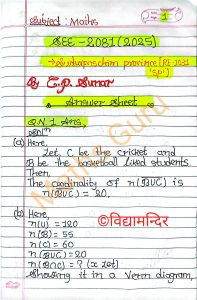 Subject: Maths
1
SEE - 2081 (2025)
→ Sudurpaschim province (RE-1031
'SP')
By C.P. Kunwar
Answer Sheet
Q.N. 1 Ans,
Soln
(a) Here,
Let C be the cricket and
B be the basketball liked students.
Then,
The cardinality of n(B∪C) is
n(B∪C) = 20.
(b) Here,
n(U) = 120
n(B) = 55
n(C) = 60
n(B∪C) = 20
n(B∩C) = ? (x let)
Showing it in a Venn diagram,
©विद्यामन्दिर
Maths Guru